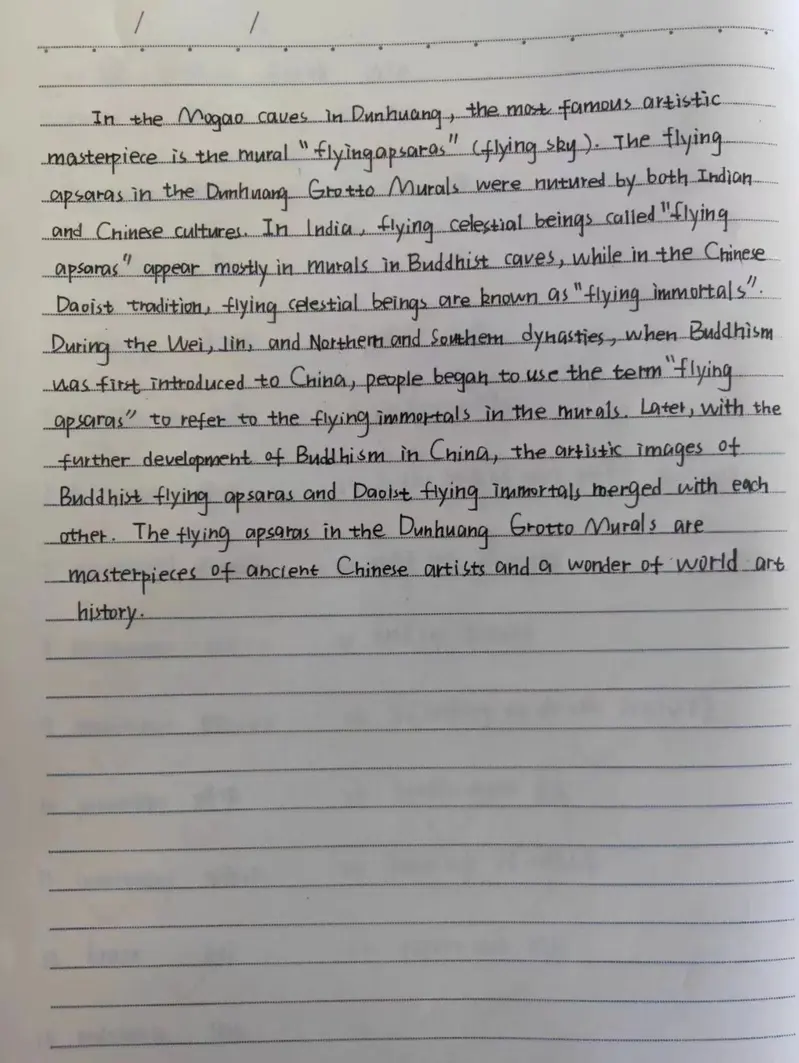 / /
In the Mogao caves in Dunhuang, the most famous artistic
masterpiece is the mural "flying apsaras" (flying sky). The flying
apsaras in the Dunhuang Grotto Murals were nutured by both Indian
and Chinese cultures. In India, flying celestial beings called "flying
apsaras" appear mostly in murals in Buddhist caves, while in the Chinese
Daoist tradition, flying celestial beings are known as "flying immortals".
During the Wei, Jin, and Northern and Southern dynasties, when Buddhism
was first introduced to China, people began to use the term "flying
apsaras" to refer to the flying immortals in the murals. Later, with the
further development of Buddhism in China, the artistic images of
Buddhist flying apsaras and Daoist flying immortals merged with each
other. The flying apsaras in the Dunhuang Grotto Murals are
masterpieces of ancient Chinese artists and a wonder of world art
history.